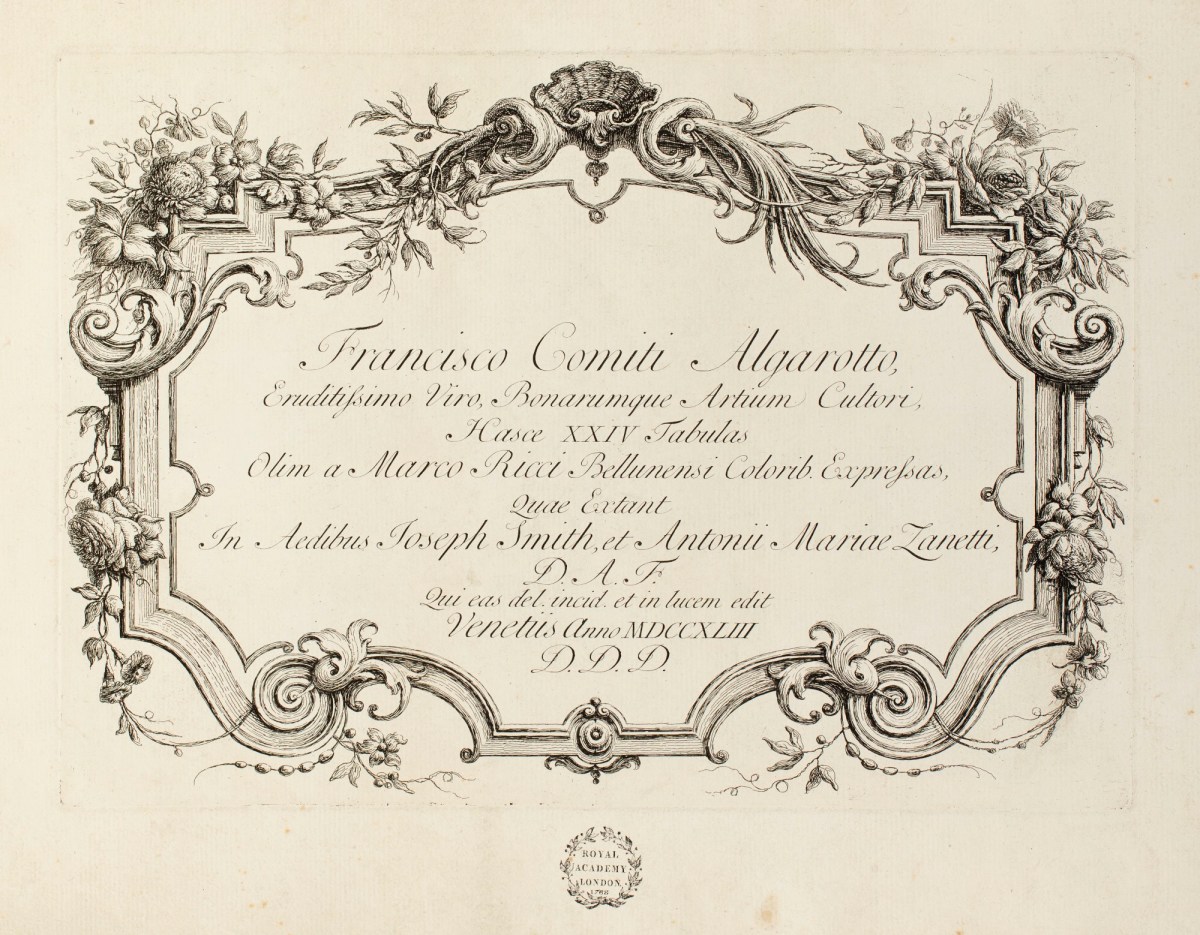 Francisco Comiti Algarotto,
Eruditiſsimo Viro, Bonarumque Artium Cultori,
Hasce XXIV Tabulas
Olim a Marco Ricci Bellunensi Colorib. Expreſsas,
Quae Extant
In Aedibus Joseph Smith, et Antonii Mariae Zanetti,
D. A. F.
Qui eas del. incid. et in lucem edit
Venetiis Anno MDCCXLIII
D. D. D.
ROYAL
ACADEMY
LONDON,
1768